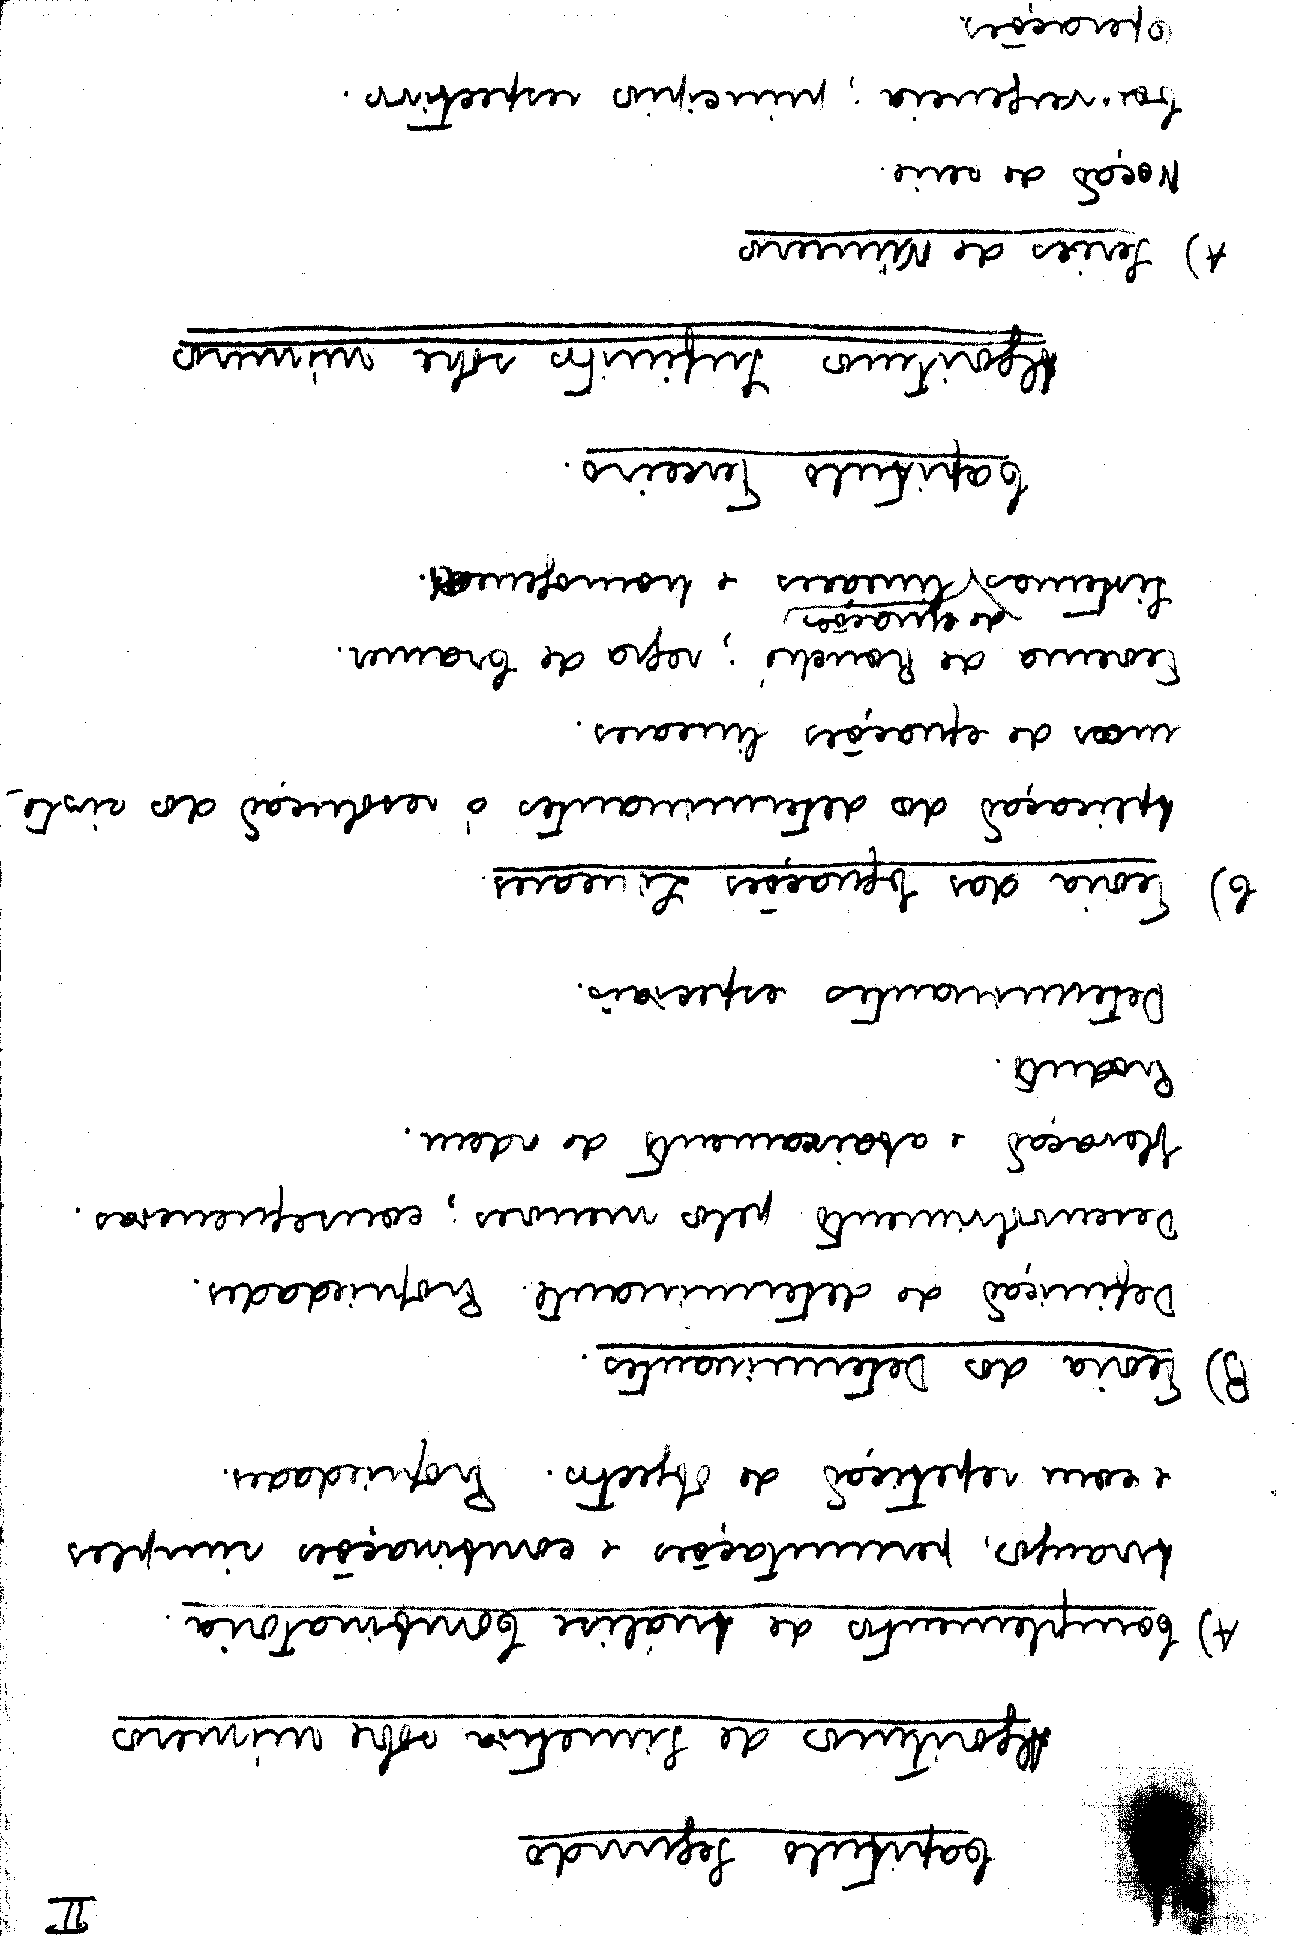 II
Capitulo Segundo
Algoritmos de Simetria sobre números
A) Complementos de Análise Combinatoria.
Arranjos, permutações e combinações simples
e com repetição de objectos. Propriedades.
B) Teoria dos Determinantes.
Definição de determinante. Propriedades.
Desenvolvimento pelos menores; consequencias.
Elevação e abaixamento de ordem.
Produto.
Determinantes especiais.
C) Teoria das Equações Lineares
Aplicação dos determinantes à resolução dos siste-
mas de equações lineares.
Teorema de Rouché; regra de Cramer.
de equações
Sistemas lineares e homogeneas.
Capitulo Terceiro.
Algoritmos Infinitos sobre números
A) Series de Números
Noção de serie.
Convergencia; principios respectivos.
Operações.